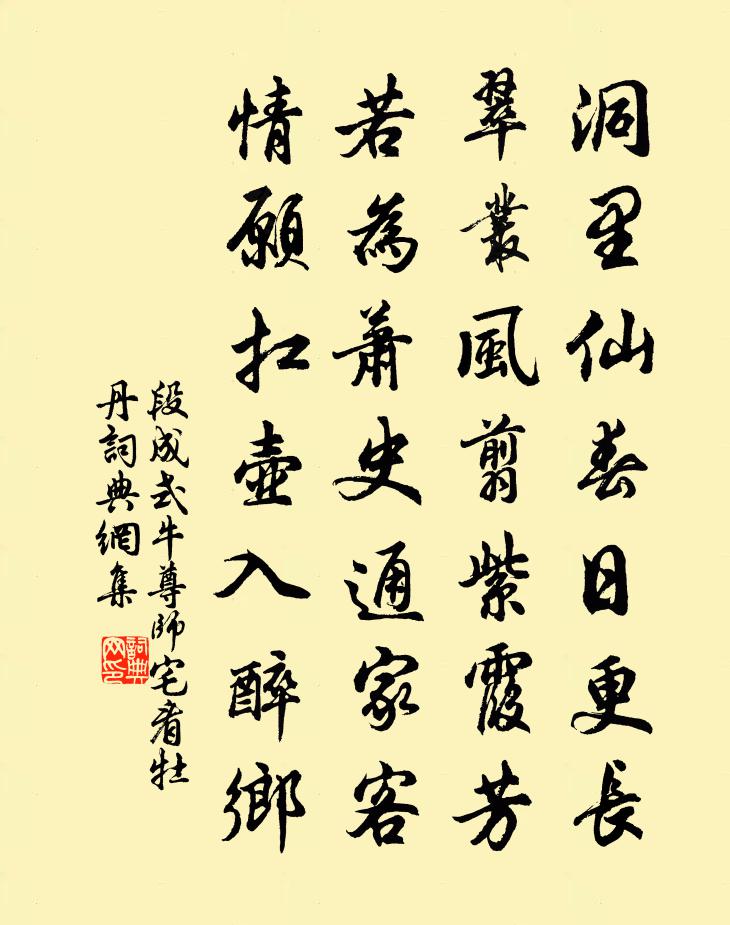 洞里仙春日更長
翠叢風翦紫霞芳
若為蕭史通家客
情願扛壺入醉鄉
段成式牛尊師宅看牡
丹詞典網集
詞典
网印